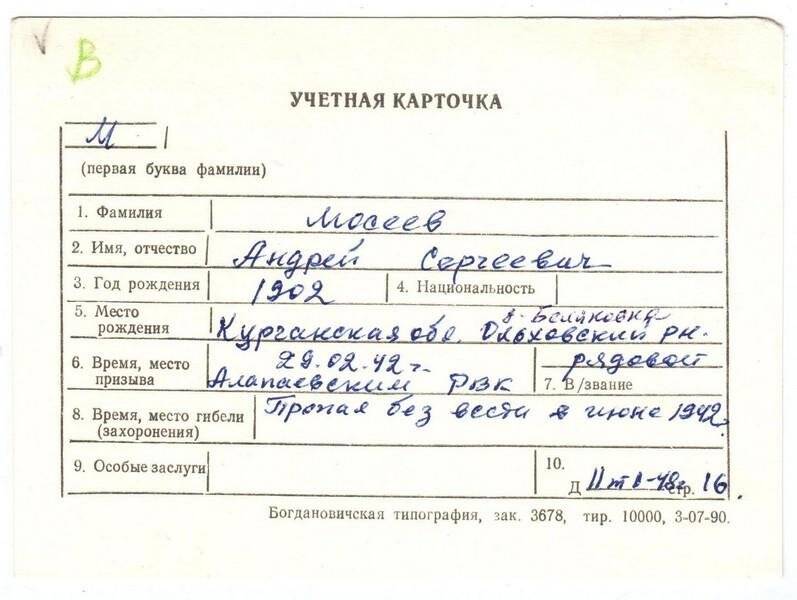 В
УЧЕТНАЯ КАРТОЧКА
М
(первая буква фамилии)
1. Фамилия Мосеев
2. Имя, отчество Андрей Сергеевич
3. Год рождения 1902 4. Национальность
5. Место рождения д. Беляковка
Курганская обл. Ольховский рн.
6. Время, место призыва 29.02.42 г.
Алапаевским РВК
рядовой
7. В/звание
8. Время, место гибели (захоронения) Пропал без вести в июне 1942г.
9. Особые заслуги
10.
Д стр. 16.
Богдановичская типография, зак. 3678, тир. 10000, 3-07-90.